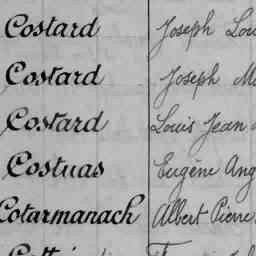 Costard Joseph Lou
Costard Joseph Ma
Costard Louis Jean
Costuas Eugène Ang
Cotarmanach Albert Pierre